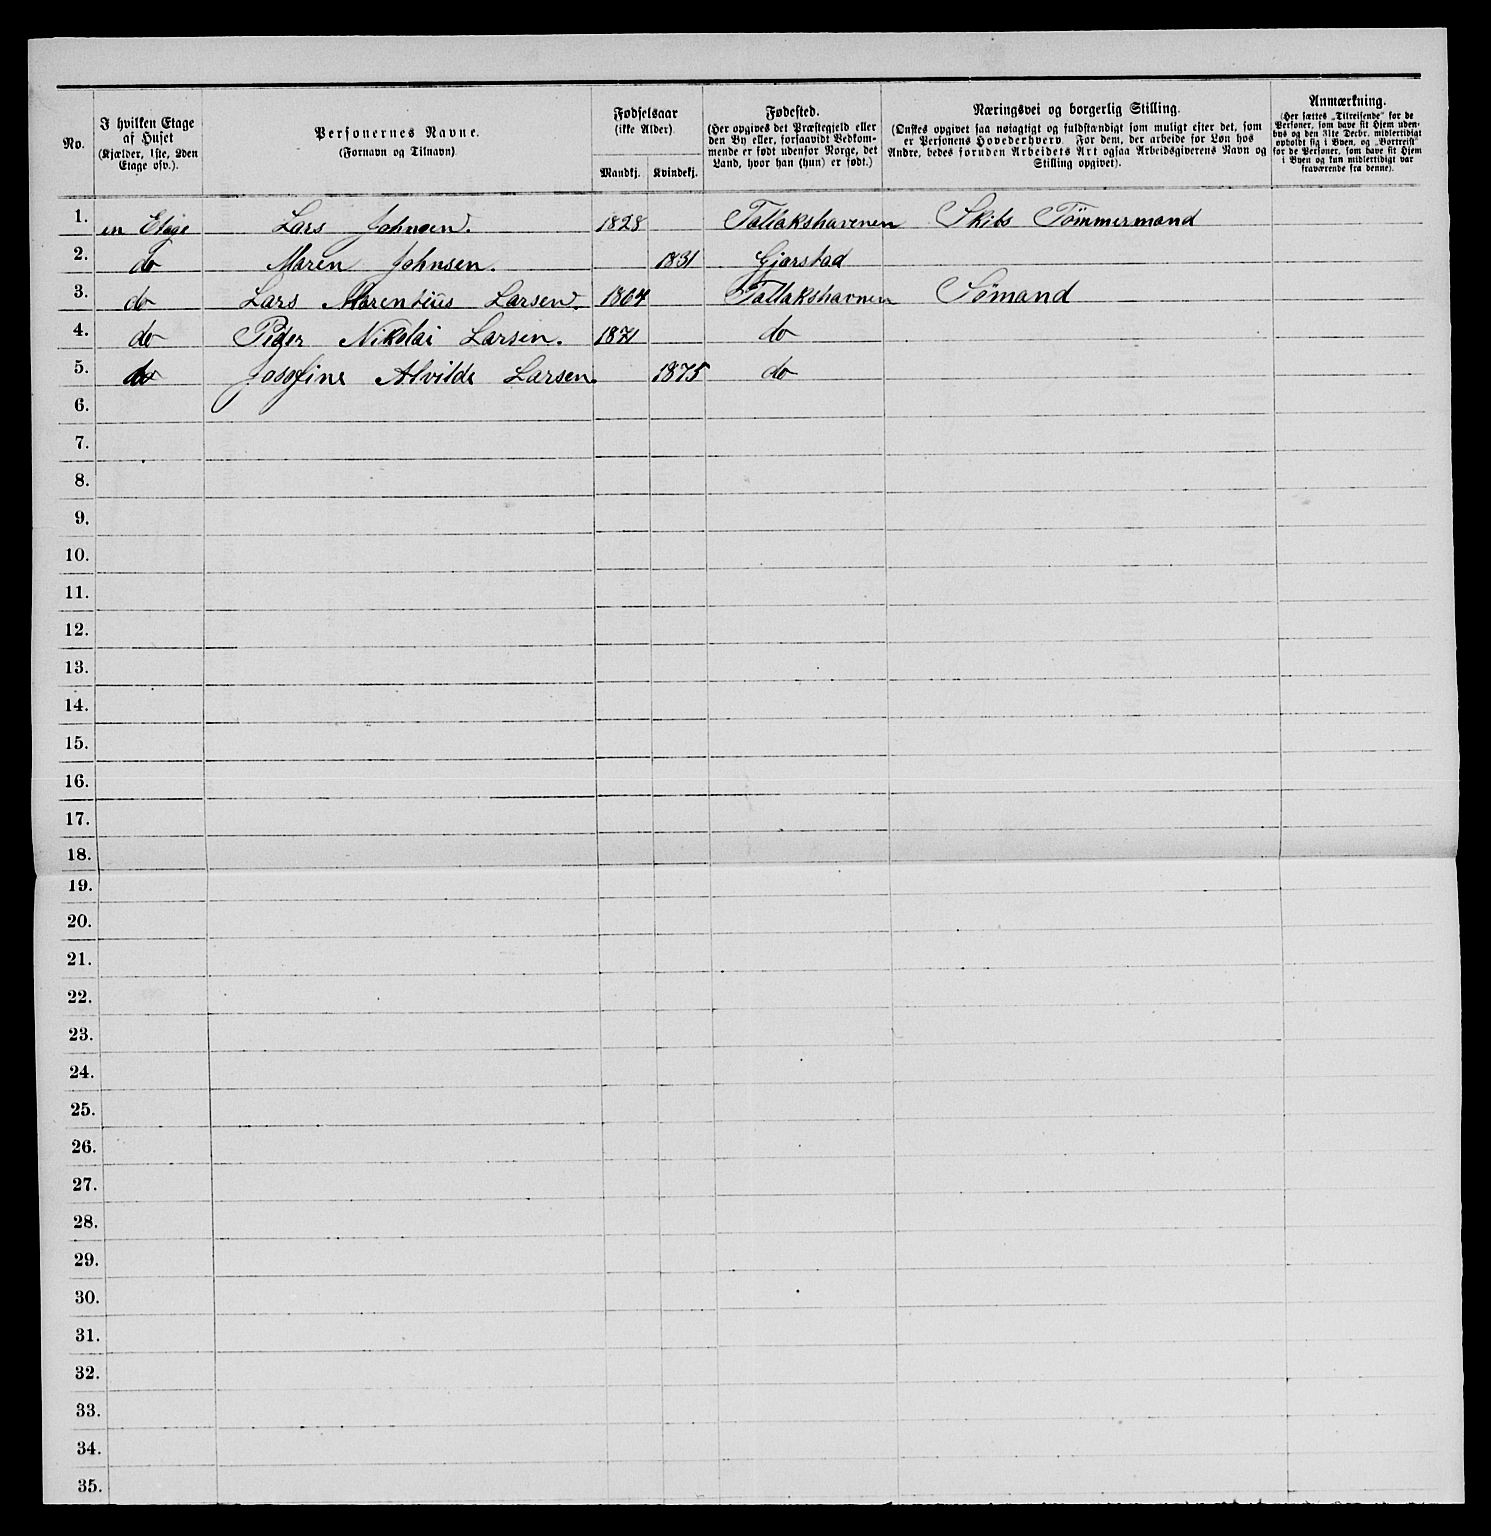 No.
I hvilken Etage af Huset (Kjælder, 1ste, 2den Etage osv.).
Personernes Navne. (Fornavn og Tilnavn)
Fødselsaar (ikke Alder).
Mandkj. Kvindekj.
Fødested. (Her opgives det Præstegjeld eller den By eller, forsaavidt Vedkommende er født udenfor Norge, det Land, hvor han (hun) er født.)
Næringsvei og borgerlig Stilling. (Ønskes opgivet saa nøiagtigt og fuldstændigt som muligt efter det, som er Personens Hovederhverv. For dem, der arbeide for Løn hos Andre, bedes foruden Arbeidets Art ogsaa Arbeidsgiverens Navn og Stilling opgivet).
Anmærkning. (Her sættes „Tilreisende" for de Personer, som have sit Hjem udenbys og den 31te Decbr. midlertidigt opholdt sig i Byen, og „Bortreist" for de Personer, som have sit Hjem i Byen og kun midlertidigt var fraværende fra denne).
1. en Etage Lars Johnsen. 1828 Tallakshavnen Skibs Tömmermand
2. do Maren Johnsen. 1831 Gjerstad
3. do Lars Marentius Larsen. 1864 Tallakshavnen Sömand
4. do Peder Nikolai Larsen. 1871 do
5. do Josefine Alvilde Larsen. 1875 do
6.
7.
8.
9.
10.
11.
12.
13.
14.
15.
16.
17.
18.
19.
20.
21.
22.
23.
24.
25.
26.
27.
28.
29.
30.
31.
32.
33.
34.
35.